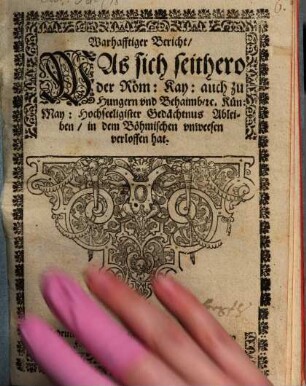 Warhafftiger Bericht/
WAs sich seithero
der Röm: Kay: auch zu
Hungern vnd Behaimb/rc. Kün:
May: Hochseeligister Gedächtnus Ablei-
ben/ in dem Böhmischen vnwesen
verloffen hat.